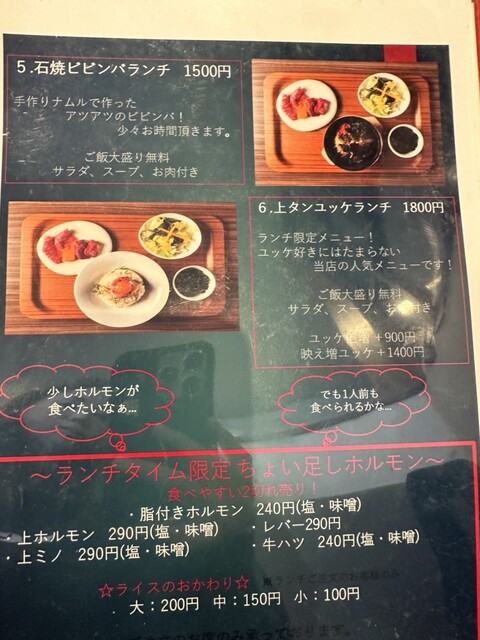 5.石焼ビビンバランチ 1500円
手作りナムルで作った
アツアツのビビンバ！
少々お時間頂きます。
ご飯大盛り無料
サラダ、スープ、お肉付き
6.上タンユッケランチ 1800円
ランチ限定メニュー！
ユッケ好きにはたまらない
当店の人気メニューです！
ご飯大盛り無料
サラダ、スープ、お肉付き
ユッケ倍増＋900円
映え増ユッケ＋1400円
少しホルモンが
食べたいなぁ...
でも1人前も
食べられるかな...
～ランチタイム限定 ちょい足しホルモン～
食べやすい2切れ売り！
・脂付きホルモン 240円(塩・味噌)
・上ホルモン 290円(塩・味噌)
・レバー290円
・上ミノ 290円(塩・味噌)
・牛ハツ 240円(塩・味噌)
☆ライスのおかわり☆
大：200円 中：150円 小：100円